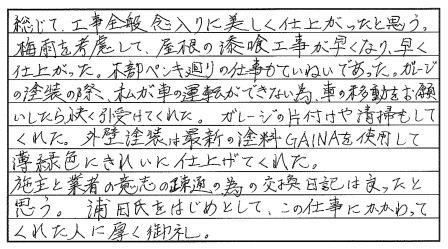 総じて、工事全般 念入りに美しく仕上がったと思う。
梅雨を考慮して、屋根の漆喰工事が早くなり、早く
仕上がった。木部ペンキ廻りの仕事もていねいであった。ガレージ
の塗装の際、私が車の運転ができない為、車の移動をお願
いしたら快く引受けてくれた。ガレージの片付けや清掃もして
くれた。外壁塗装は最新の塗料GAINAを使用して
薄緑色にきれいに仕上げてくれた。
施主と業者の意志の疎通の為の交換日記は良ったと
思う。 浦田氏をはじめとして、この仕事にかかわって
くれた人に厚く御礼。